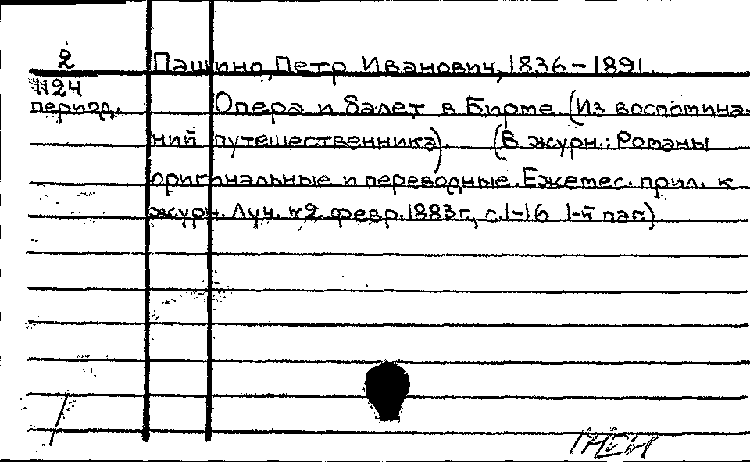 2 Пашино, Петр Иванович, 1836-1891.
1124
период. Опера и балет в Бирме (Из воспомина-
ний путешественника). (В журн.: Романы
оригинальные и переводные. Ежемес. прил. к
журн. Луч. №2 февр. 1883г., с.1-16 1-й паг)